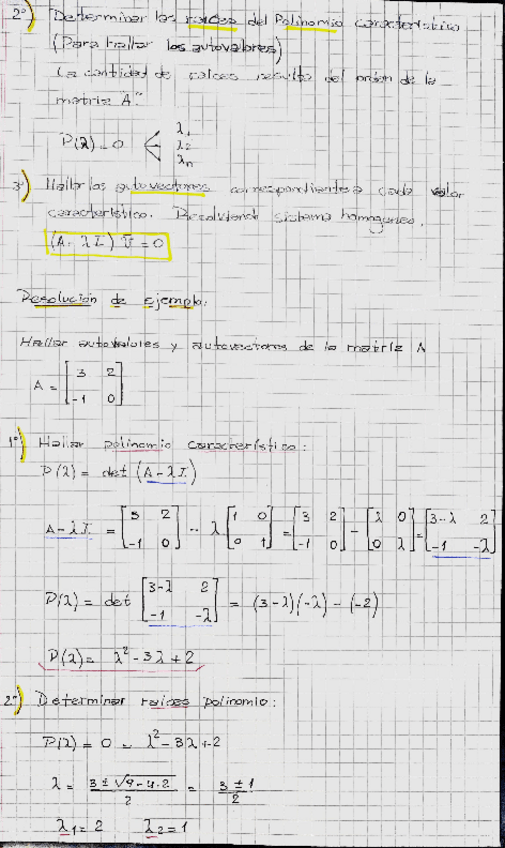 2º) Determinar las raíces del Polinomio característico
(Para hallar los autovalores)
La cantidad de raíces resulta del orden de la
matriz A.
P(λ) = 0 < λ1 λ2 λn
3º) Hallar los autovectores correspondientes a cada valor
característico. Resolviendo sistema homogéneo.
(A - λI) v̄ = 0
Resolución de ejemplo:
Hallar autovalores y autovectores de la matriz A
A = [3 2; -1 0]
1º) Hallar polinomio característico:
P(λ) = det (A - λI)
A - λI = [3 2; -1 0] - λ [1 0; 0 1] = [3 2; -1 0] - [λ 0; 0 λ] = [3-λ 2; -1 -λ]
P(λ) = det [3-λ 2; -1 -λ] = (3-λ)(-λ) - (-2)
P(λ) = λ² - 3λ + 2
2º) Determinar raíces polinomio:
P(λ) = 0 = λ² - 3λ + 2
λ = (3 ± √9 - 4.2)/2 = (3 ± 1)/2
λ1 = 2 λ2 = 1